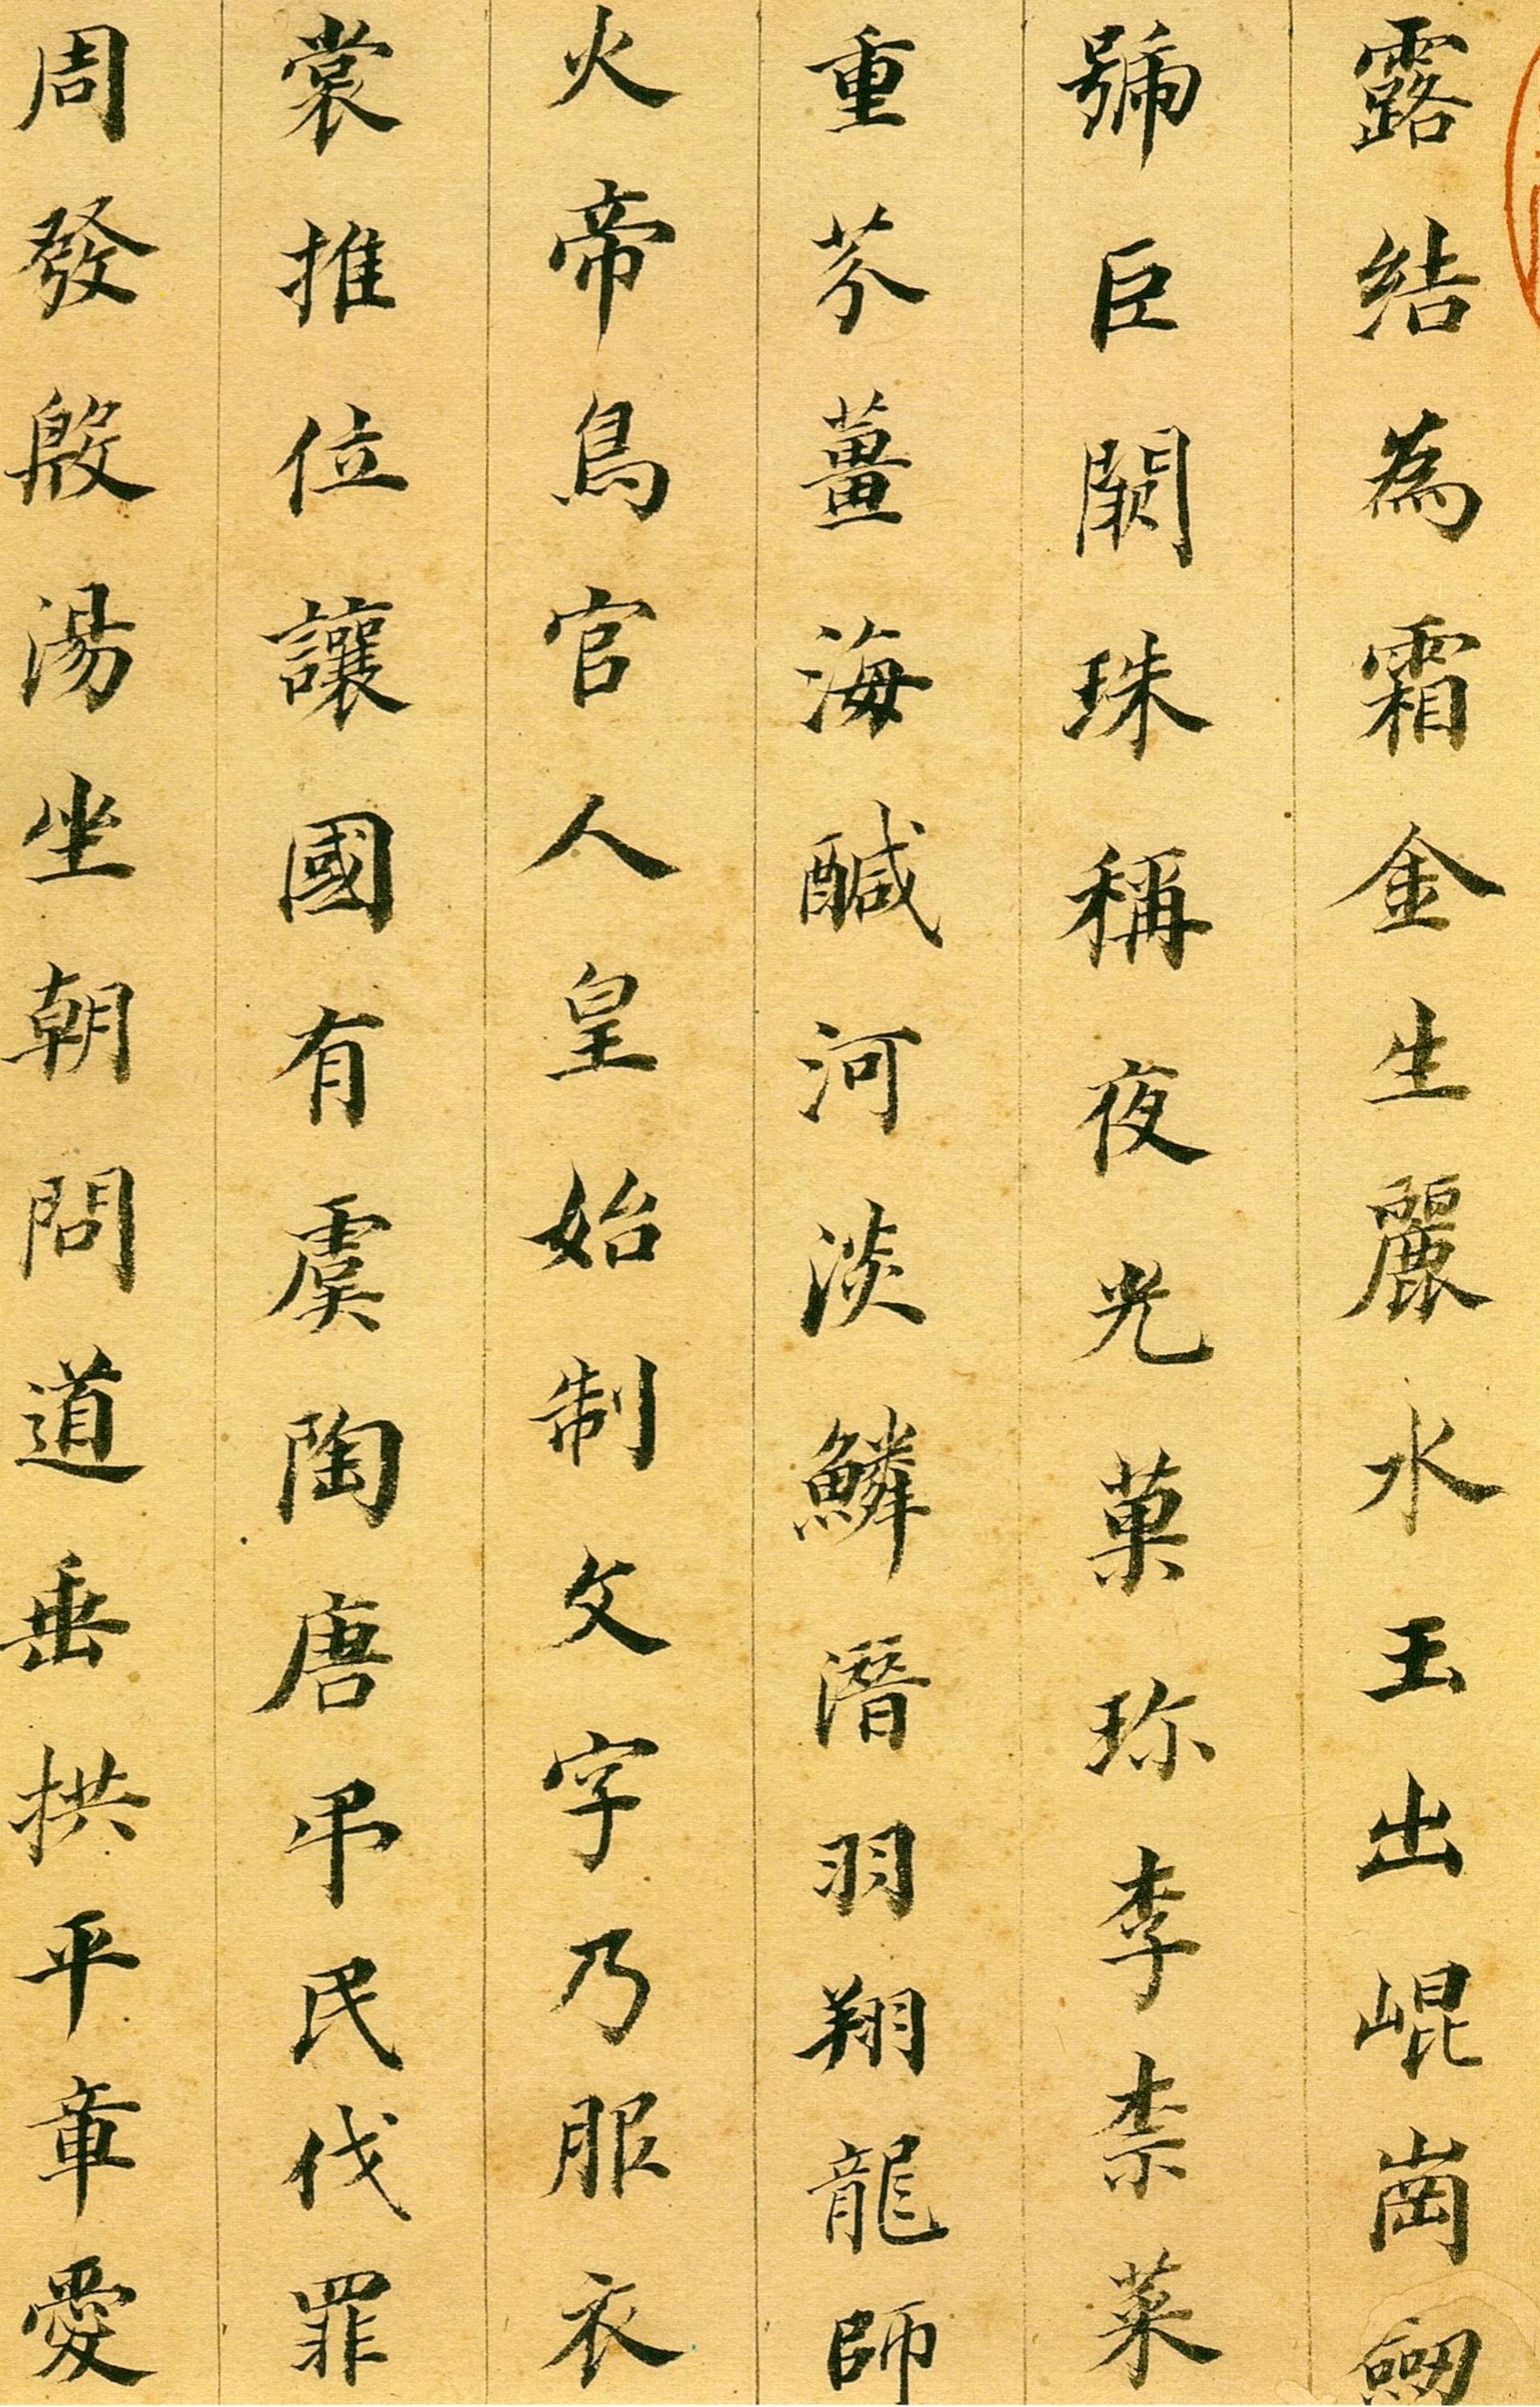 露結為霜金生麗水玉出崐崗劒
號臣闕珠稱夜光菓珎李柰菜
重芥薑海醎河淡鱗潛羽翔龍師
火帝鳥官人皇始制文字乃服衣
裳推位讓國有虞陶唐弔民伐罪
周發殷湯坐朝問道垂拱平章愛